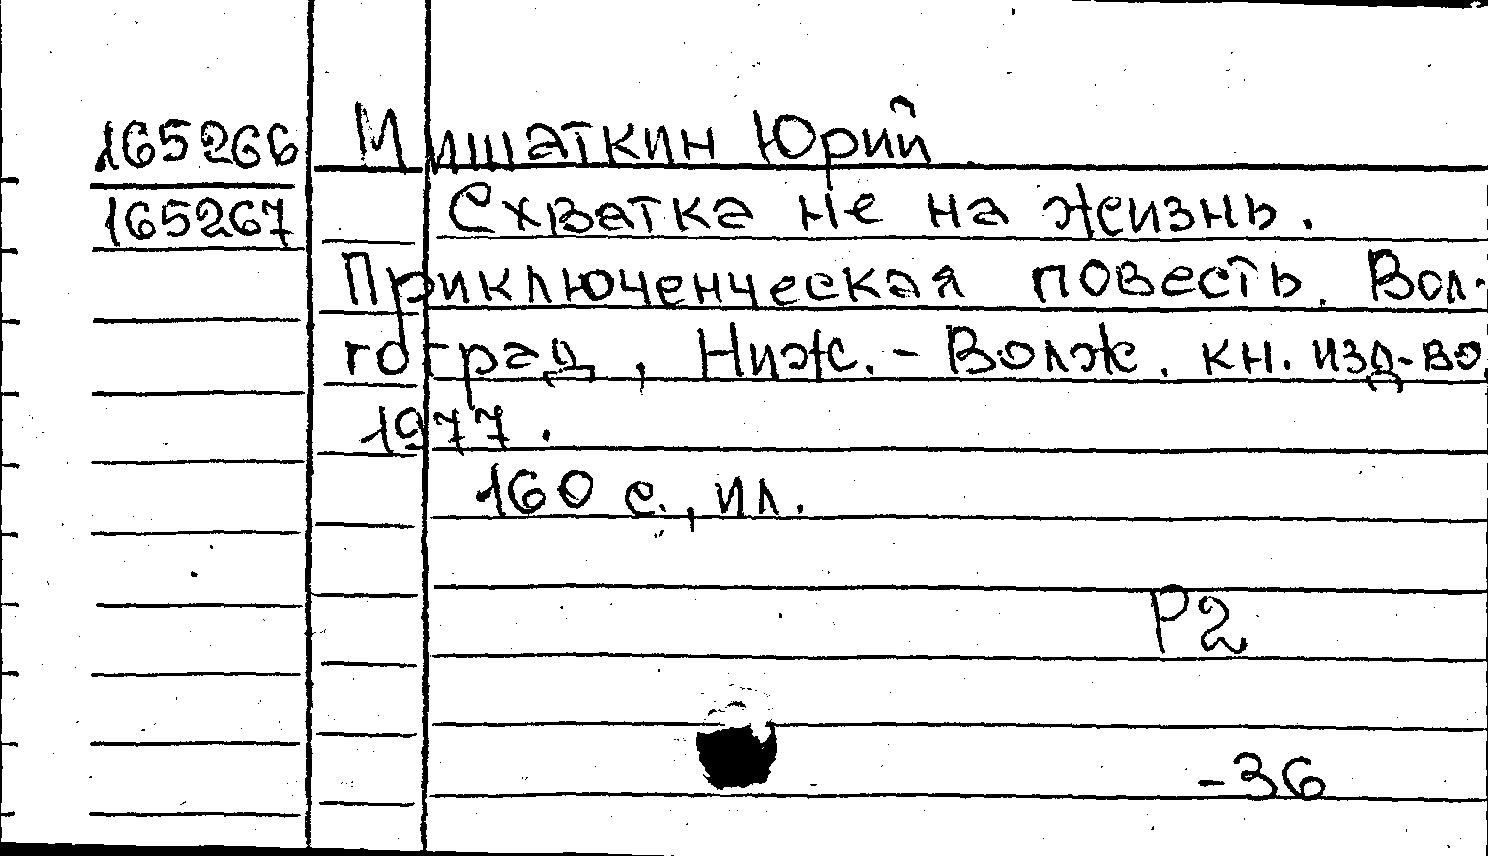 165266 Мишаткин Юрий
165267 Схватка не на жизнь.
Приключенческая повесть. Вол-
гоград, Ниж.-Волж. кн. изд-во,
1977.
160 с., ил.
Р2
-36